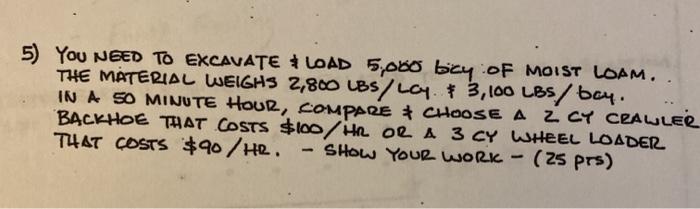 5) YOU NEED TO EXCAVATE & LOAD 5,000 bcy OF MOIST LOAM.
THE MATERIAL WEIGHS 2,800 LBS/LCY. & 3,100 LBS/bcy.
IN A 50 MINUTE HOUR, COMPARE & CHOOSE A 2 CY CRAWLER
BACKHOE THAT COSTS $100/HR OR A 3 CY WHEEL LOADER
THAT COSTS $90/HR. - SHOW YOUR WORK - (25 PTS)